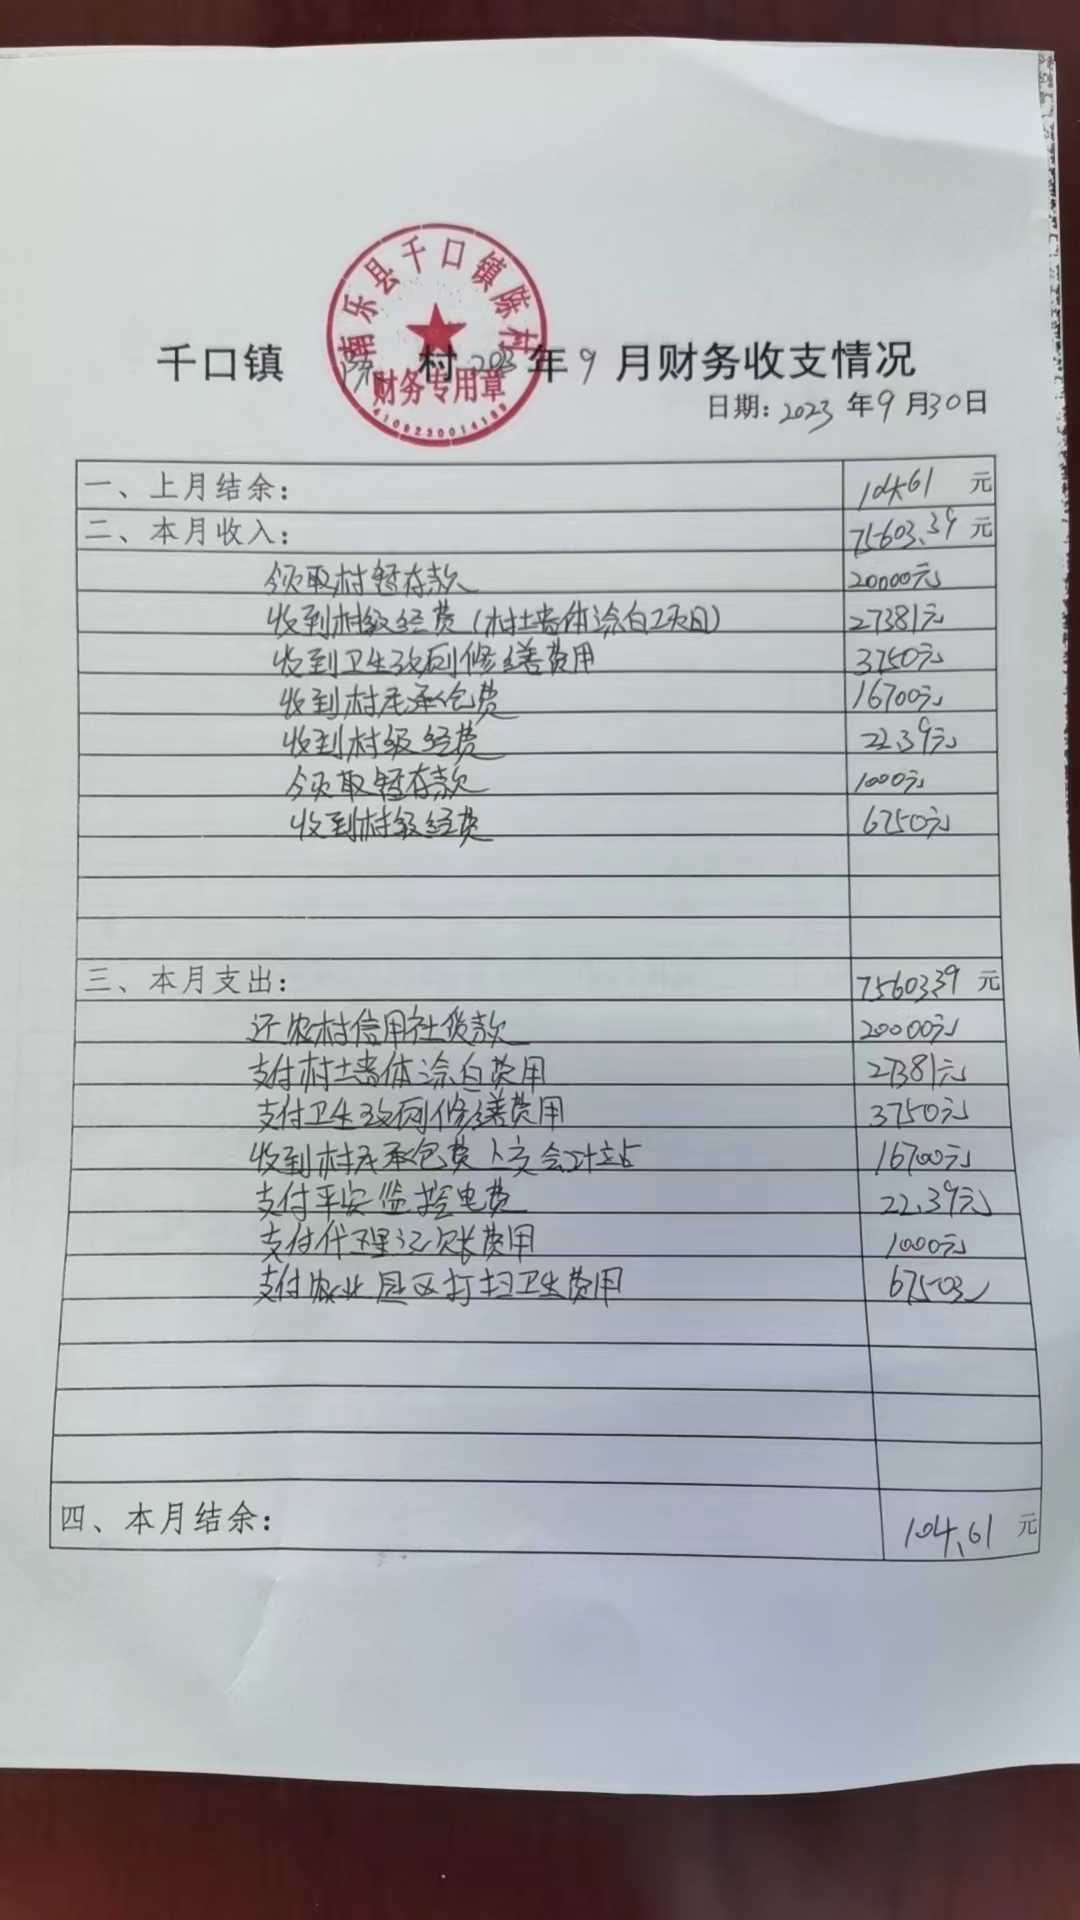 南乐县千口镇陈村
财务专用章
4109230014189
千口镇 陈 村 2023 年 9 月财务收支情况
日期: 2023 年 9 月 30 日
一、上月结余: 104.61 元
二、本月收入: 75603.39 元
领取村暂存款 20000元
收到村级经费(村土墙体涂白工项目) 27381元
收到卫生改厕修缮费用 3750元
收到村民承包费 16700元
收到村级经费 22.39元
领取暂存款 1000元
收到村级经费 6750元
三、本月支出: 75603.39 元
还农村信用社贷款 20000元
支付村土墙体涂白费用 27381元
支付卫生改厕修缮费用 3750元
收到村民承包费上交会计站 16700元
支付平安监控电费 22.39元
支付代理记账费用 1000元
支付农业园区打扫卫生费用 6750元
四、本月结余: 104.61 元